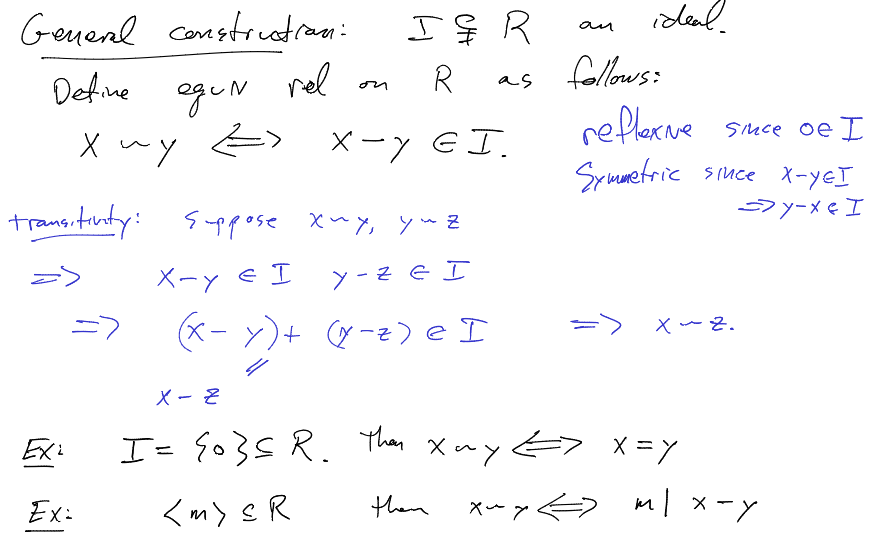 General construction: I ⊊ R an ideal.
Define equiv rel on R as follows:
x ~ y ⟺ x - y ∈ I.
reflexive since 0 ∈ I
Symmetric since x-y ∈ I
⟹ y-x ∈ I
transitivity: Suppose x ~ y, y ~ z
⟹ x-y ∈ I y-z ∈ I
⟹ (x-y) + (y-z) ∈ I ⟹ x ~ z.
//
x - z
Ex: I = {0} ⊆ R. Then x ~ y ⟺ x = y
Ex: <m> ⊆ R then x ~ y ⟺ m | x - y